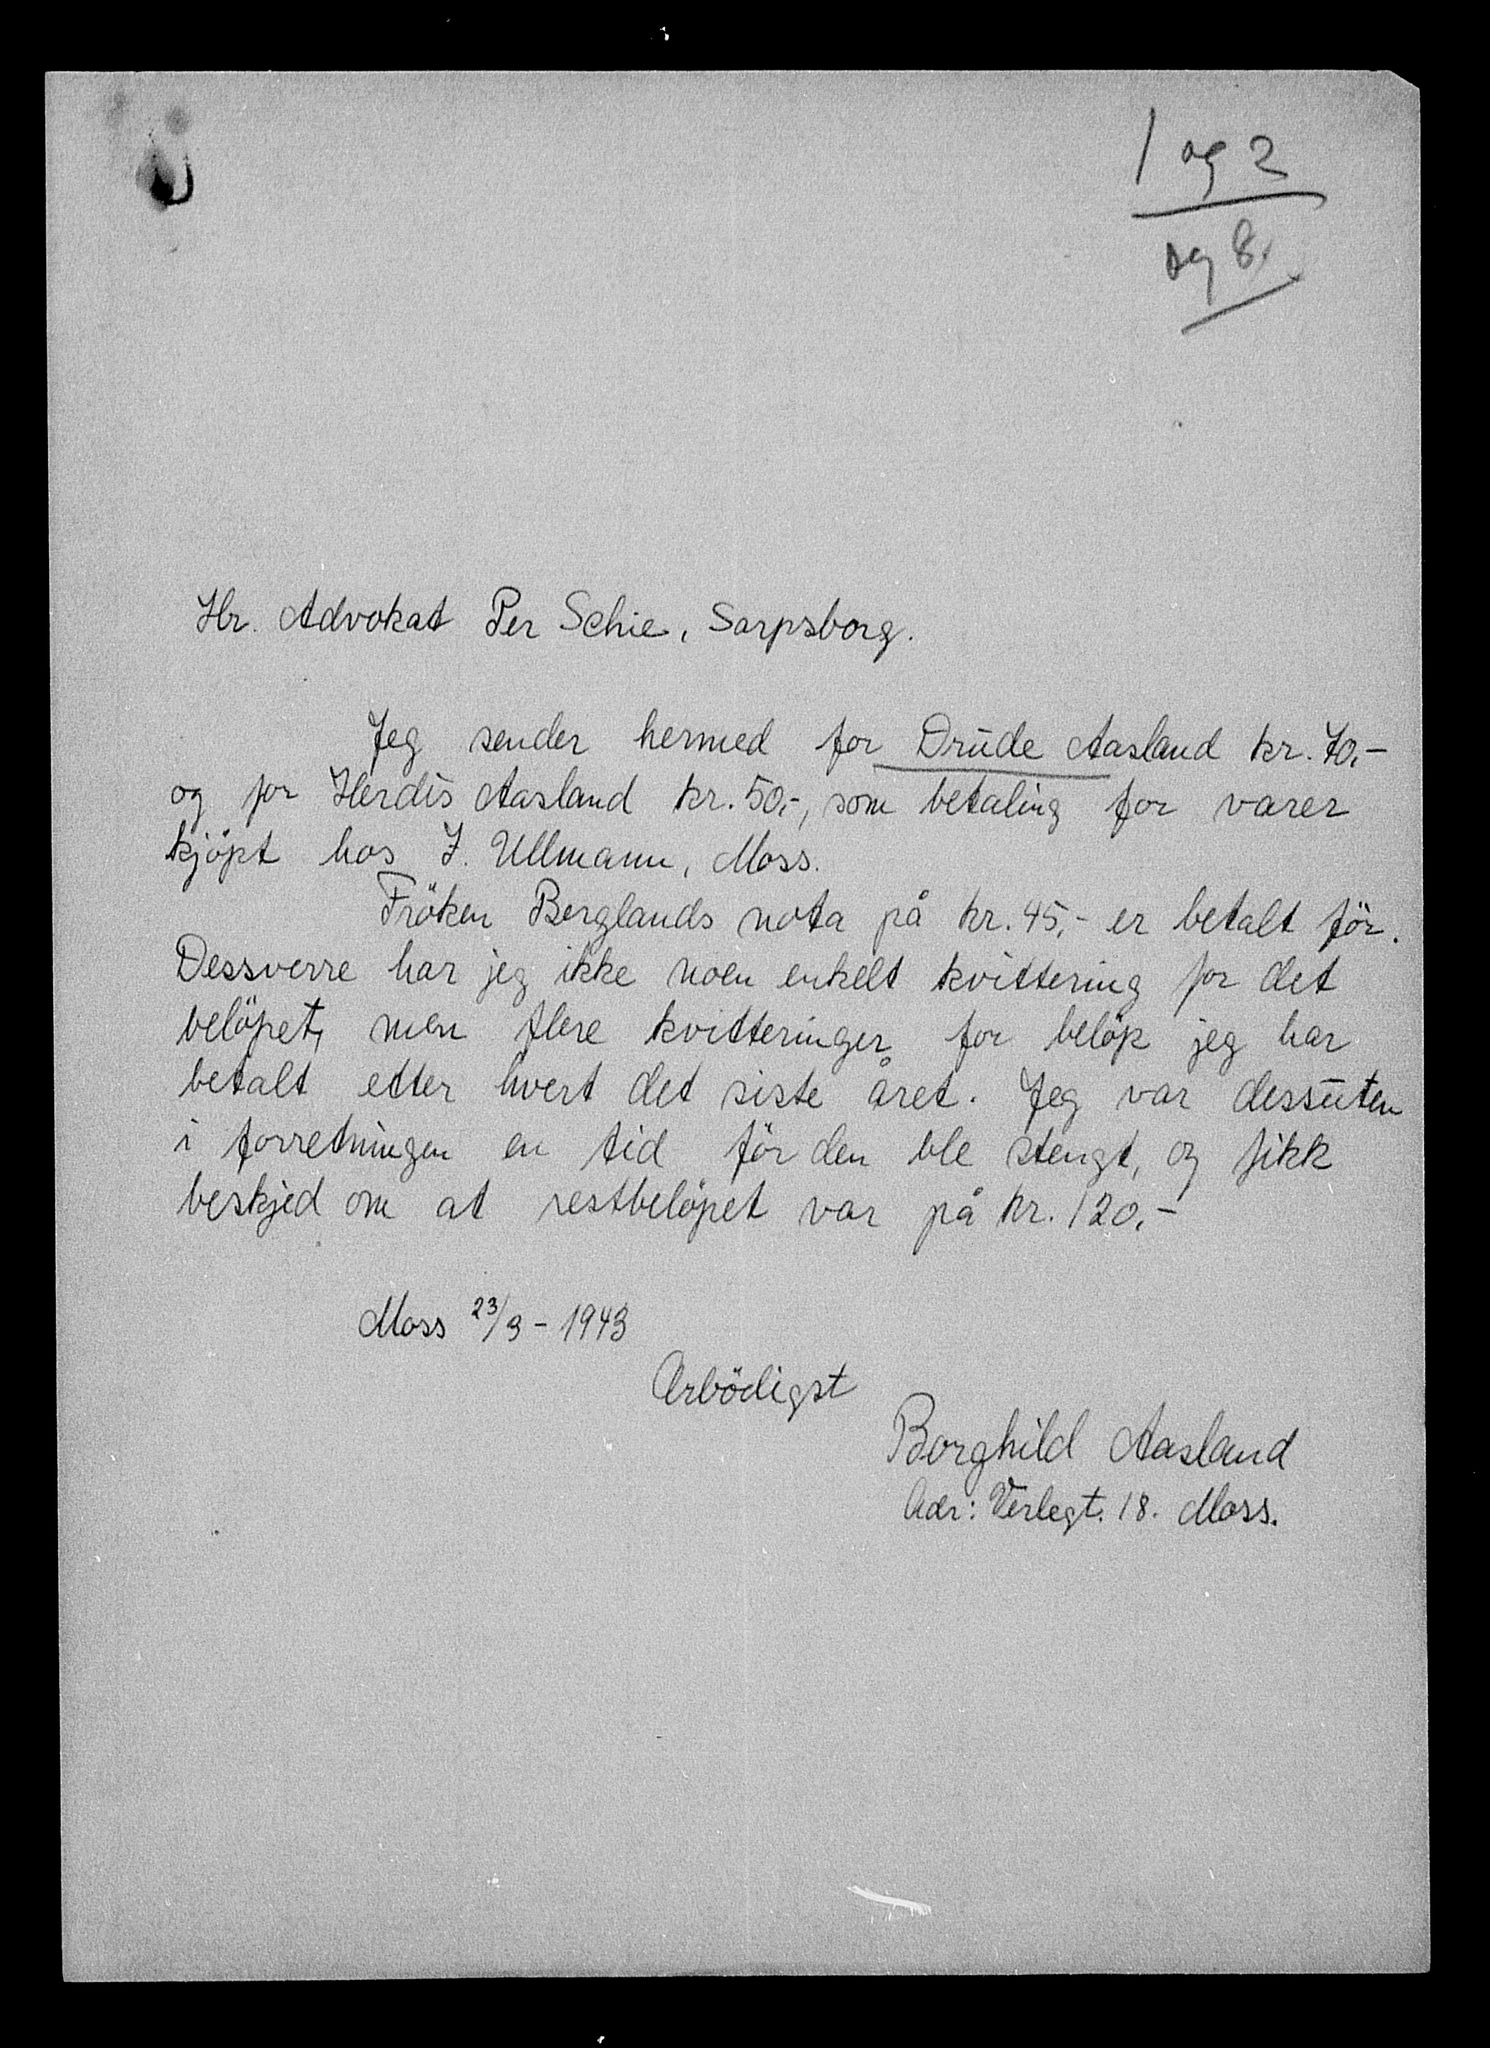 1 og 2
og 8.
Hr. Advokat Per Schie, Sarpsborg.
Jeg sender hermed for Drude Aasland kr. 70,-
og for Herdis Aasland kr. 50,-, som betaling for varer
kjöpt hos I. Ullmann, Moss.
Fröken Berglands nota på kr. 45,- er betalt för.
Dessverre har jeg ikke noen enkelt kvittering for det
belöpet, men flere kvitteringer for belöp jeg har
betalt etter hvert det siste året. Jeg var dessuten
i forretningen en tid för den ble stengt, og fikk
beskjed om at restbelöpet var på kr. 120,-
Moss 23/3 - 1943
Arbödigst
Borghild Aasland
Adr: Verlegt. 18. Moss.